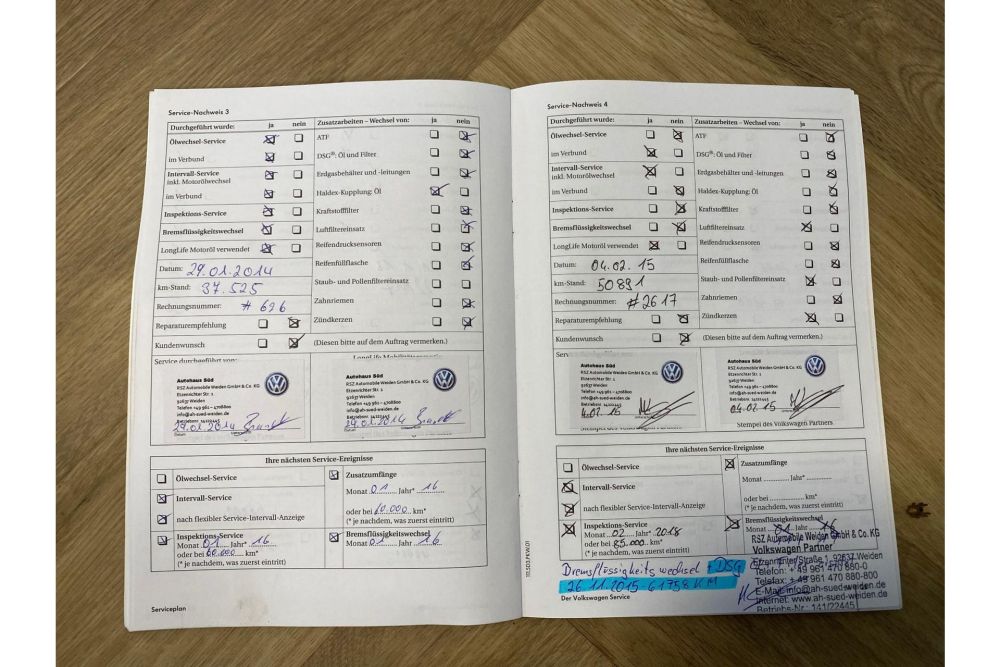 Service-Nachweis 3
Durchgeführt wurde: ja nein
Ölwechsel-Service
im Verbund
Intervall-Service
inkl. Motorölwechsel
im Verbund
Inspektions-Service
Bremsflüssigkeitswechsel
LongLife Motoröl verwendet
Datum: 29.01.2014
km-Stand: 37.525
Rechnungsnummer: # 626
Reparaturempfehlung
Kundenwunsch
Zusatzarbeiten – Wechsel von: ja nein
ATF
DSG®: Öl und Filter
Erdgasbehälter und -leitungen
Haldex-Kupplung: Öl
Kraftstofffilter
Luftfiltereinsatz
Reifendrucksensoren
Reifenfüllflasche
Staub- und Pollenfiltereinsatz
Zahnriemen
Zündkerzen
(Diesen bitte auf dem Auftrag vermerken.)
Service durchgeführt von:
Autohaus Süd
RSZ Automobile Weiden GmbH & Co. KG
Etzenrichter Str. 1
92637 Weiden
Telefon +49 961 – 4708800
info@ah-sued-weiden.de
29.01.2014
Datum
Autohaus Süd
RSZ Automobile Weiden GmbH & Co. KG
Etzenrichter Str. 1
92637 Weiden
Telefon +49 961 – 4708800
info@ah-sued-weiden.de
29.01.2014
Ihre nächsten Service-Ereignisse
Ölwechsel-Service
Intervall-Service
nach flexibler Service-Intervall-Anzeige
Inspektions-Service
Monat 01 Jahr 16
oder bei 60.000 km*
(* je nachdem, was zuerst eintritt)
Zusatzumfänge
Monat 01 Jahr* 16
oder bei 60.000 km*
(* je nachdem, was zuerst eintritt)
Bremsflüssigkeitswechsel
Monat 01 Jahr 16
Serviceplan
111.5D3.PKW.01
Service-Nachweis 4
Durchgeführt wurde: ja nein
Ölwechsel-Service
im Verbund
Intervall-Service
inkl. Motorölwechsel
im Verbund
Inspektions-Service
Bremsflüssigkeitswechsel
LongLife Motoröl verwendet
Datum: 04.02.15
km-Stand: 50891
Rechnungsnummer: #2617
Reparaturempfehlung
Kundenwunsch
Zusatzarbeiten – Wechsel von: ja nein
ATF
DSG®: Öl und Filter
Erdgasbehälter und -leitungen
Haldex-Kupplung: Öl
Kraftstofffilter
Luftfiltereinsatz
Reifendrucksensoren
Reifenfüllflasche
Staub- und Pollenfiltereinsatz
Zahnriemen
Zündkerzen
(Diesen bitte auf dem Auftrag vermerken.)
Autohaus Süd
RSZ Automobile Weiden GmbH & Co. KG
Etzenrichter Str. 1
92637 Weiden
Telefon +49 961 – 4708800
info@ah-sued-weiden.de
4.02.15
Autohaus Süd
RSZ Automobile Weiden GmbH & Co. KG
Etzenrichter Str. 1
92637 Weiden
Telefon +49 961 – 4708800
info@ah-sued-weiden.de
04.02.15
Stempel des Volkswagen Partners
Stempel des Volkswagen Partners
Ihre nächsten Service-Ereignisse
Ölwechsel-Service
Intervall-Service
nach flexibler Service-Intervall-Anzeige
Inspektions-Service
Monat 02 Jahr 2018
oder bei 85.000 km*
(* je nachdem, was zuerst eintritt)
Zusatzumfänge
Monat Jahr*
oder bei km*
(* je nachdem, was zuerst eintritt)
Bremsflüssigkeitswechsel
Monat 01 Jahr 16
RSZ Automobile Weiden GmbH & Co. KG
Volkswagen Partner
Etzenrichter Straße 1, 92637 Weiden
Telefon: + 49 961 470 880-0
Telefax: + 49 961 470 880-800
E-Mail: info@ah-sued-weiden.de
Internet: www.ah-sued-weiden.de
Betriebs-Nr.: 141/22445
Bremsflüssigkeitswechsel + DSG
26.11.2015 61758 KM
Der Volkswagen Service